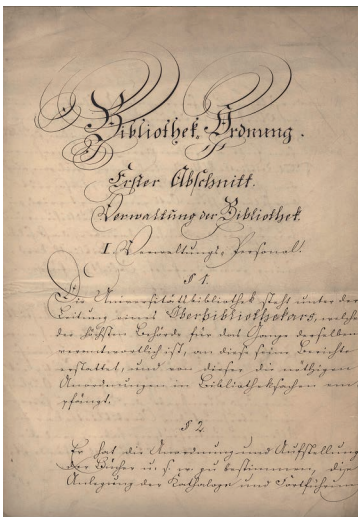 Bibliothek-Ordnung.
Erster Abschnitt.
Verwaltung der Bibliothek.
I. Verwaltungs-Personal.
§ 1.
Die Universitätsbibliothek steht unter der
Leitung eines Oberbibliothekars, welcher
der höchsten Behörde für das Ganze derselben
verantwortlich ist, an diese seine Berichte
erstattet, und von dieser die nöthigen
Anordnungen in Bibliotheksachen em-
pfängt.
§ 2.
Er hat die Anordnung und Aufstellung
der Bücher u. s. w. zu bestimmen, die
Anlegung der Kataloge und Fortführung